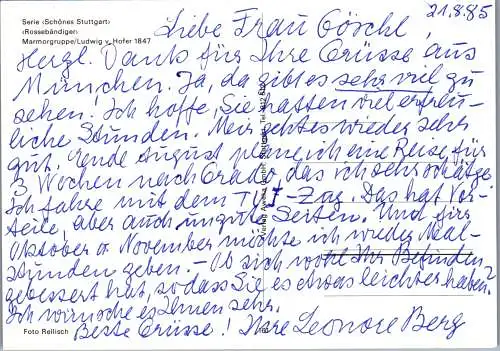 Serie ‹Schönes Stuttgart›
‹Rossebändiger›
Marmorgruppe/Ludwig v. Hofer 1847
21.8.85
Liebe Frau Göschl,
Herzl. Dank für Ihre Grüsse aus
München. Ja, da gibt es sehr viel zu
sehen! Ich hoffe, Sie hatten viel erfreu-
liche Stunden. Mir geht es wieder sehr
gut. Ende August plane ich eine Reise für
3 Wochen nach Grado, das ich sehr schätze
Ich fahre mit dem -Zug. Das hat Vor-
teile, aber auch ungute Seiten. Und für
Oktober November möchte ich wieder Mal-
stunden geben. – Ob sich wohl Ihr Befinden
gebessert hat, sodass Sie es etwas leichter haben?
Ich wünsche es Ihnen sehr.
Beste Grüsse! Ihre Leonore Berg
Foto Reilisch